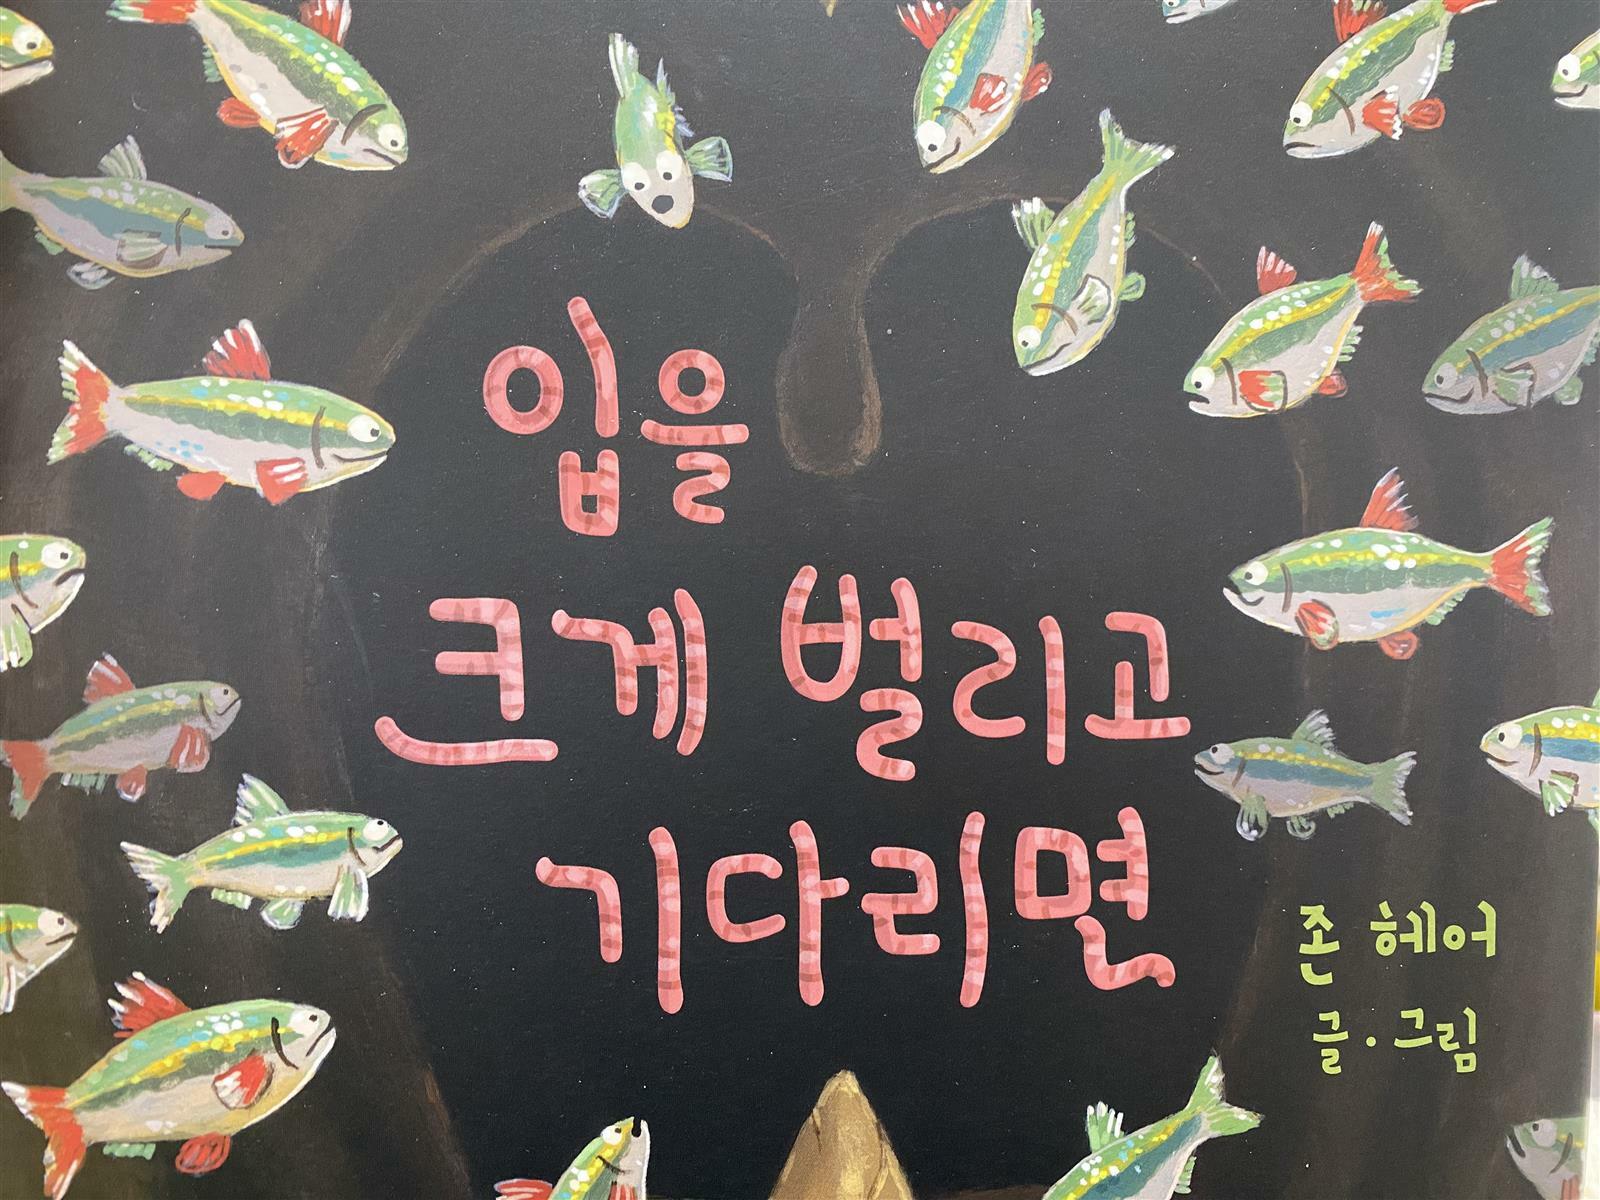 입을
크게 벌리고
기다리면
존 헤어
글·그림